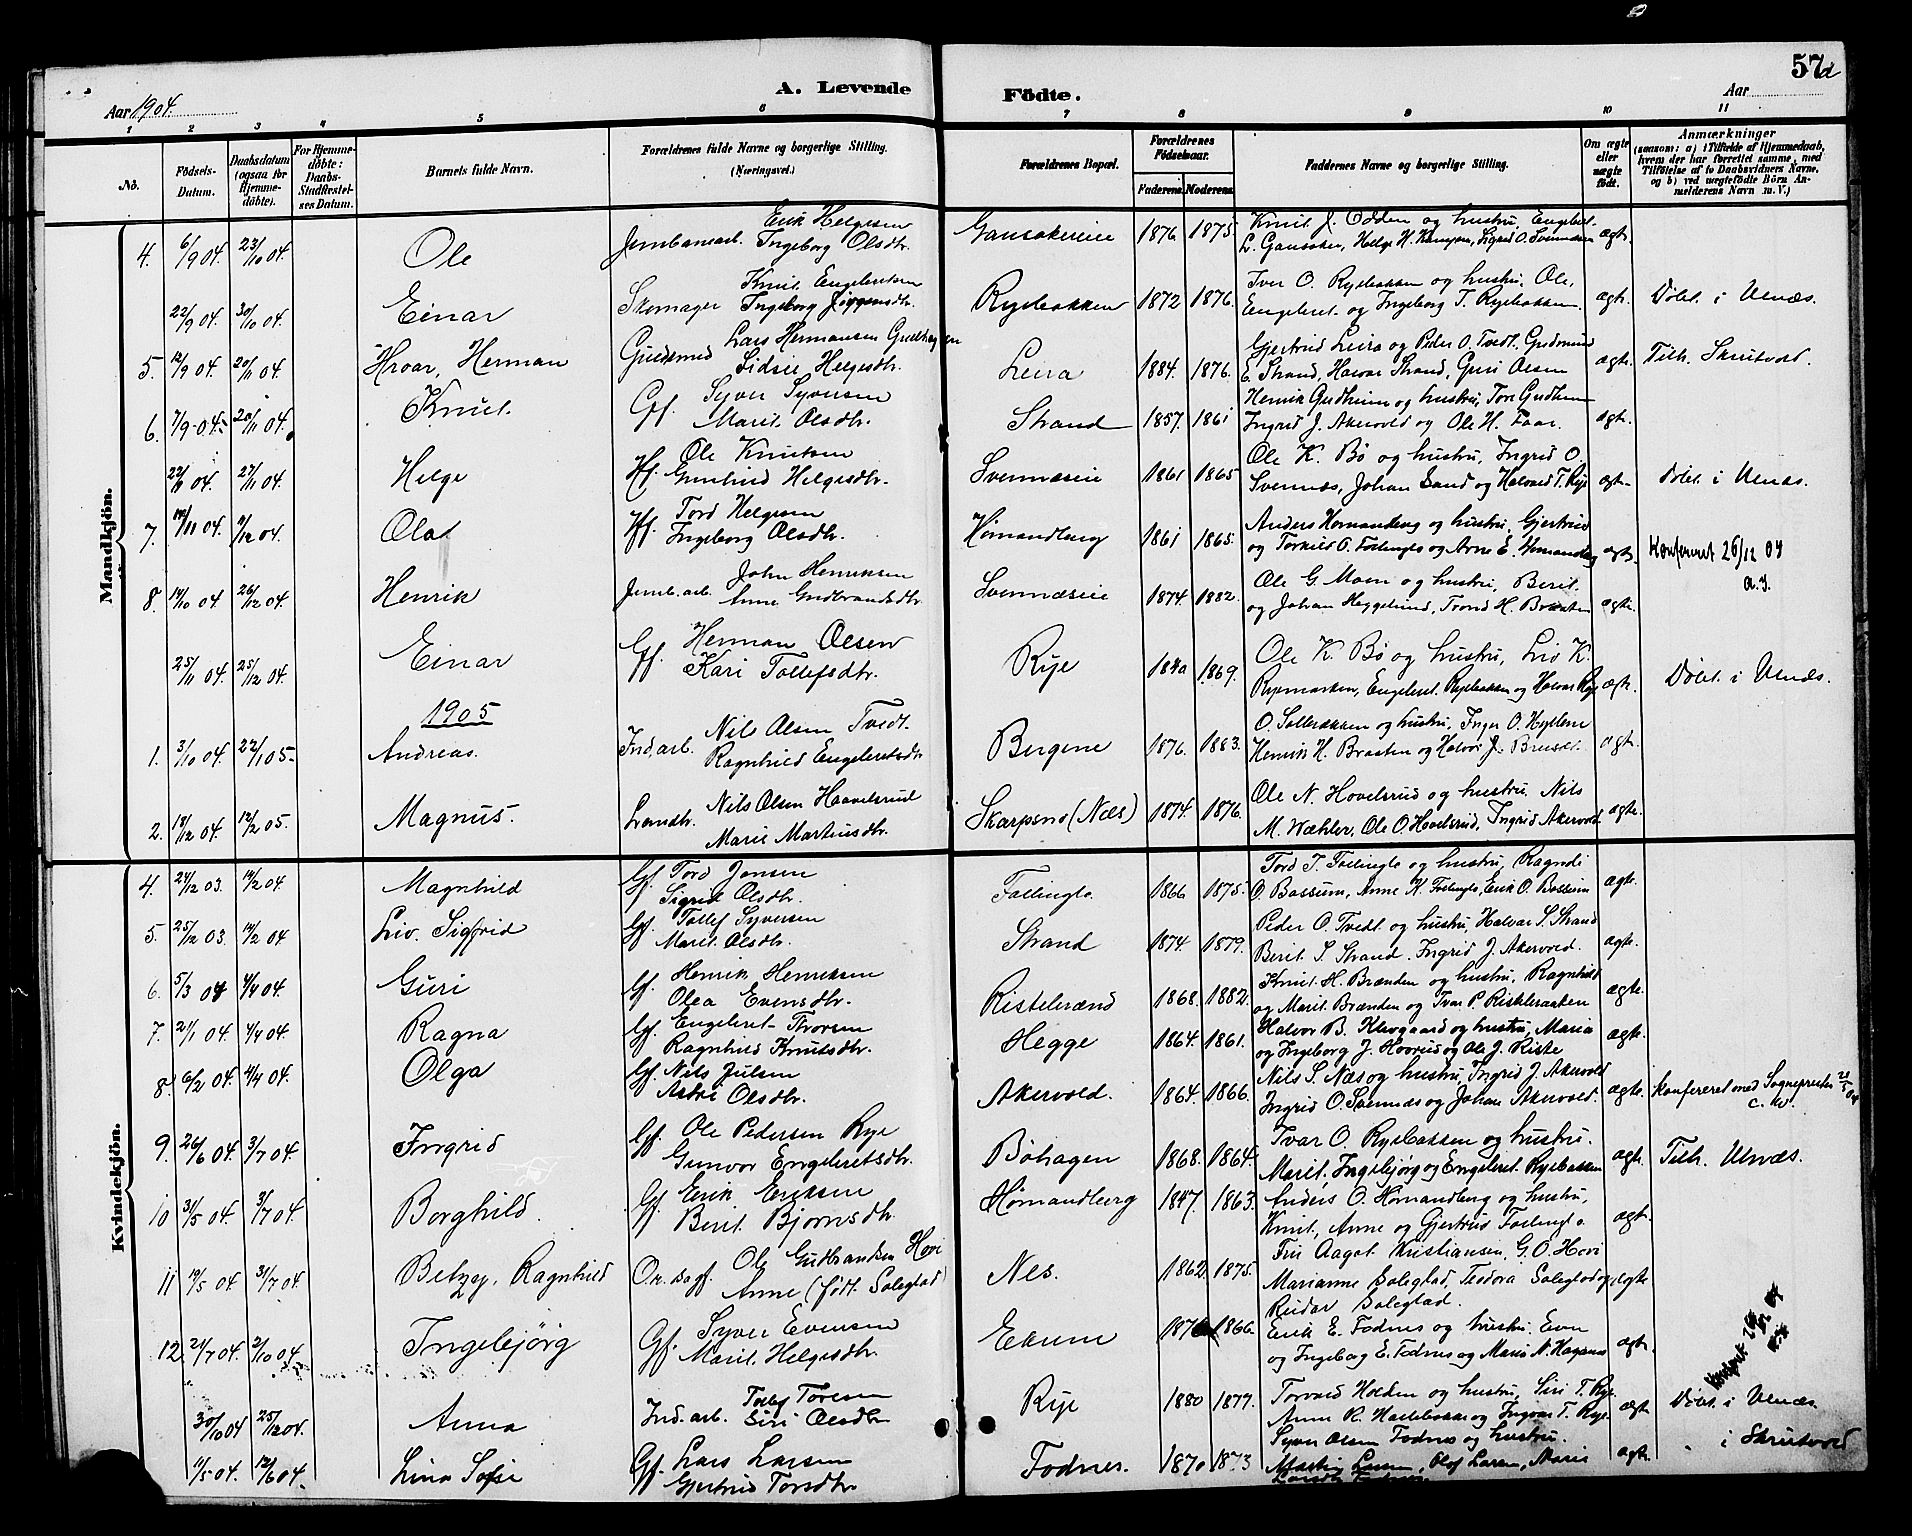 57
Aar 1904.
A. Levende Födte.
Aar
1 2 3 4 5 6 7 8 9 10 11
No.
Födsels-Datum.
Daabsdatum (ogsaa for Hjemmedöbte).
For Hjemmedöbte: Daabs-Stadfæstelses Datum.
Barnets fulde Navn.
Forældrenes fulde Navne og borgerlige Stilling. (Næringsvei.)
Forældrenes Bopæl.
Forældrenes Födselsaar.
Faderens Moderens
Faddernes Navne og borgerlige Stilling.
Om ægte eller uægte födt.
Anmærkninger (saasom: a) i Tilfælde af Hjemmedaab, hvem der har forrettet samme, med Tilföielse af to Daabsvidners Navne, og b) ved uægtefödte Börn Anmelderens Navn m. V.)
Mandkjön.
4. 6/9 04. 23/10 04. Ole Jernbanearb. Erik Helgesen Ingeborg Olsdtr. 1876 1875 Knut J. Odden og hustru, Engebret L. Gansaker, Helge H. Kampen, Sigrid O. Svennæsen ægte.
22/9 04. 30/10 04. Einar Skomager Knut Engebretsen Ingeborg Rysbakken 1872 1876. Iver O. Rysbakken og hustru, Ole, Engebret og Ingeborg T. Rysbakken. ægte. Døbt i Ulnæs.
5. 12/9 04. 20/11 04. Hroar, Herman Lars Hermansen Sidsel Helgesdtr. Leira 1884. 1876. Gjertrud Leira og Peder O. Tvedt, Gudmund E. Strand, Halvor Strand, Guri Olsen ægte. Tilh. Skrutvold.
6. 7/9 04. 20/11 04. Knut. Gf. Syver Syversen Marit Olsdtr. Strand 1857. 1861 Henrik Gudheim og hustru, Tore Gudheim Ingrid J. Akervold og Ole H. Faar. ægte.
27/11 04. Helge Hf. Ole Knutsen Gunhild Helgesdtr. Svennæseie 1861 1865 Ole K. Bø og hustru, Ingrid O. Svennæs, Johan Sand og Halvard T. Rye ægte. Døbt i Ulnæs.
7. Olaf Hf. Tord Helgesen Ingeborg Olsdtr. Hømandberg 1861 1865. Anders Hømandberg og hustru, Gjertrud og Torkild O. Follinglo og Arne E. Hømandberg ægte. Konfereret 26/12 04
8. 14/10 04. 26/12 04. Henrik Jernb.arb. John Henriksen Anne Gudbrandsdtr. Svennæseie 1874. 1882. Ole G. Moen og hustru, Berit og Johan Heggelund, Trond H. Braaten ægte.
25/11 04. 25/12 04. Einar Gf. Herman Olsen Kari Tollefsdtr. Rye 1869. Ole K. Bø og hustru, Liv K. Ryemarken, Engebret Rysbakken og Halvor Rye ægte. Døbt i Ulnæs.
1905
1. 3/10 04. 22/1 05. Andreas. Ind.arb. Nils Olsen Tvedt. Ragnhild Engebretsdtr. Bergene 1876. 1883. O. Sollerakken og hustru, Inger O. Henrik H. Braaten og Halvor J. ægte.
2. 18/12 04. 12/2 05. Magnus. Landhr. Nils Olsen Haavelsrud Marie Martinsdtr. Skarpsno (Næs) 1874. 1876. Ole N. Hovelsrud og hustru, Nils M. Wæhler, Ole O. Hovelsrud, Ingrid Akervold ægte.
Kvindekjön.
4. 24/12 03. 14/2 04 Magnhild Gf. Tord Jonsen Sigrid Olsdtr. Follinglo. 1866 1875. Tord T. Follinglo og hustru, Ragndi O. Bassum, Anne K. Follinglo, Erik O. Bassum ægte.
5. 25/12 03. 14/2 04 Liv. Sigfrid Gf. Tollef Syversen Marit Olsdtr. Strand 1874. 1879. Peder O. Tvedt og hustru, Halvar S. Strand Berit S. Strand. Ingrid J. Akervold. ægte.
6. 5/3 04 4/4 04. Guri Gf. Henrik Henriksen Olea Evensdtr. Ristebrænd 1868. 1882. Knut H. Brænden og hustru, Ragnhild og Marit Brænden og Ivar P. ægte.
7. 21/1 04 4/4 04. Ragna Gf. Engebret Thorsen Ragnhild Knutsdtr. Hegge 1864. 1861. Halvor B. Klevgaard og hustru, Maria og Ingeborg J. Hovrud og Ole J. Riste ægte.
8. 6/2 04. 4/4 04. Olga Gf. Nils Julsen Astri Olsdtr. Akervold. 1864. 1866. Nils S. Næs og hustru, Ingrid J. Akervold Ingrid O. Svennæs og Johan Akervold. ægte. Konfereret med Sognepresten
9. 26/6 04. 3/7 04. Ingrid Gf. Ole Pedersen Rye Gunvor Engebretsdtr. Bøhagen 1868. 1864. Ivar O. Rysbakken og hustru. Marit, Ingebjørg og Engebret Rysbakken ægte. Tilh. Ulnæs.
10 31/5 04. 3/7 04. Borghild. Gf. Erik Eriksen Berit Bjørnsdtr. Hømandberg 1847. 1863. Anders O. Hømandberg og hustru, Knut, Anne og Gjertrud Follinglo ægte.
11 19/5 04. 31/7 04 Betzy, Ragnhild Ole Gudbrandsen Hovi Anne (født Soleglad) Nes. 1862 1875. Fru Aagot Kristiansen, G. O. Hovi Marianne Soleglad, Teodora Soleglad og Reidar Soleglad. ægte
12 24/7 04. 2/10 04. Ingebjørg Gf. Syver Evensen Marit Helgesdtr. Ekum 1866. Erik E. Fodnes og hustru. Even og Ingeborg E. Fodnes og Maria N. Hagane ægte.
30/10 04 25/12 04. Anna Ind. arb. Tollef Toresen Siri Olsdtr Rye 1880 1877. Torvald Holden og hustru, Siri T. Rye Anne R. Hallebakke og Ingvar T. Rye. ægte Døbt i Ulnæs
11/5 04. 12/6 04. Lina Sofie Gf. Lars Larsen Gjertrud Torsdtr Fodnes. 1870 1873 Syver Olsen Fodnes og hustru. Martin Larsen, Olof Larsen, Maria ægte. " i Skrutvold